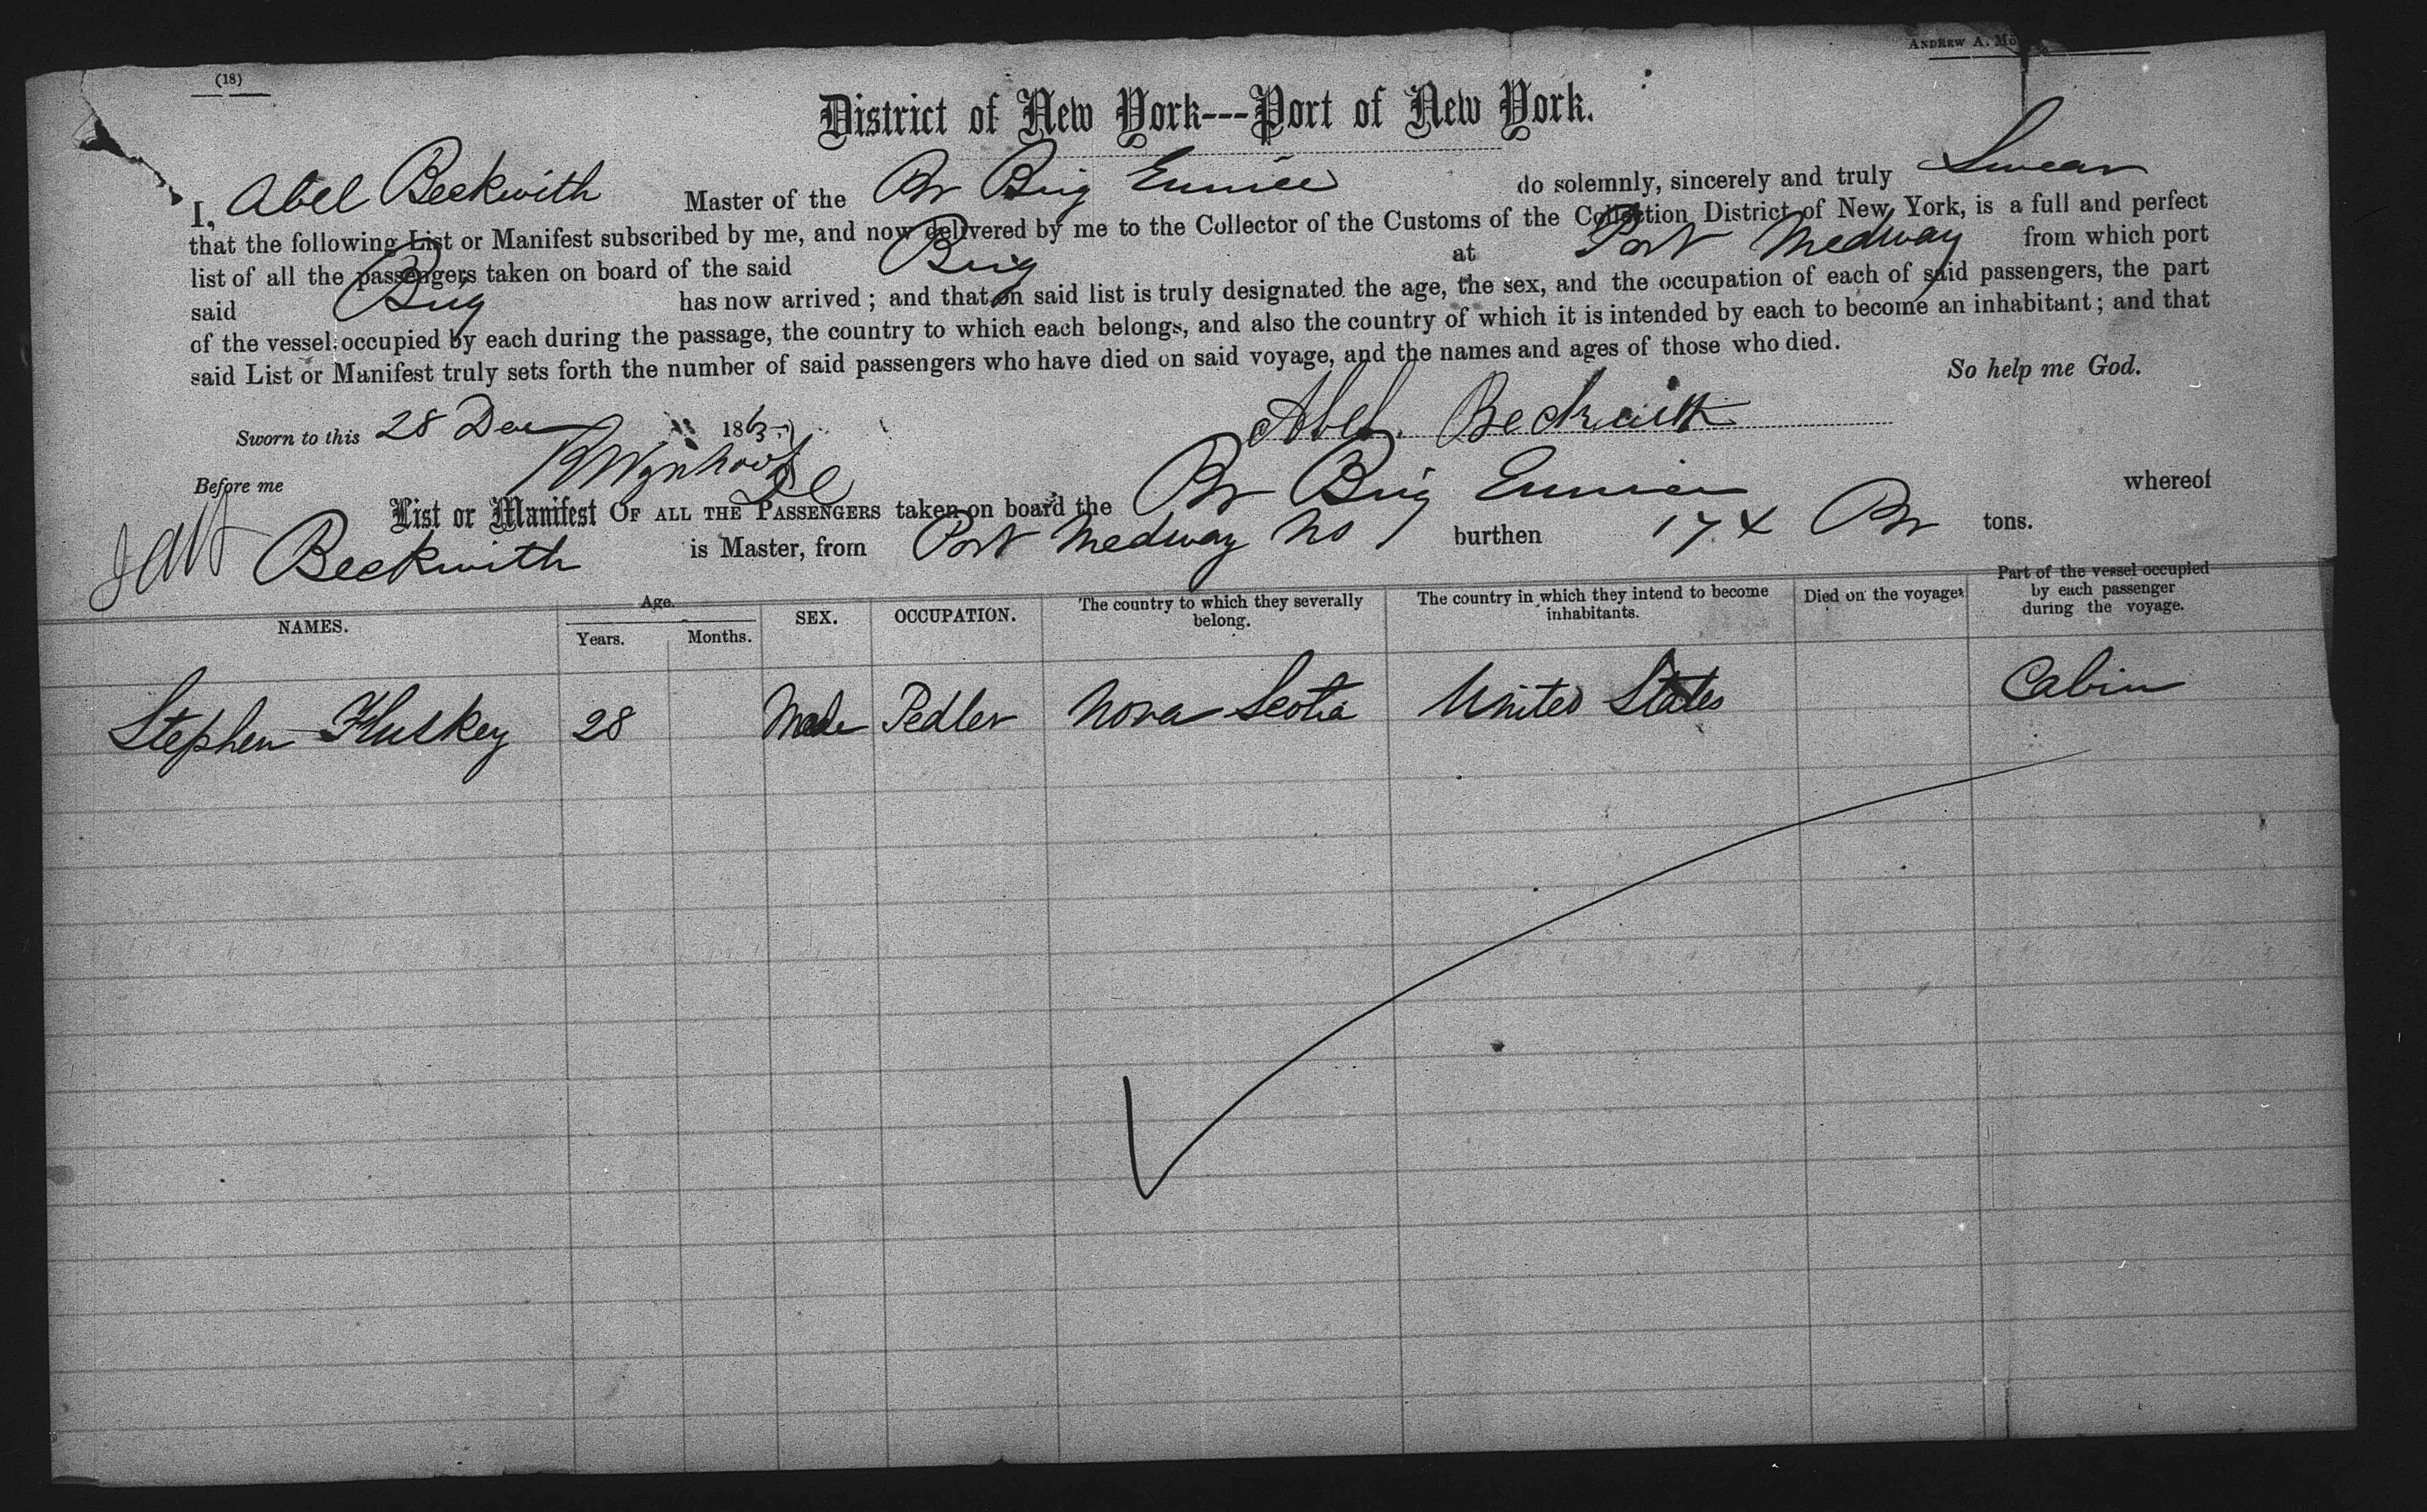 (18)
ANDREW A. Mo
District of New York---Port of New York.
I, Abel Beckwith Master of the Br Brig Eunice do solemnly, sincerely and truly Swear
that the following List or Manifest subscribed by me, and now delivered by me to the Collector of the Customs of the Collection District of New York, is a full and perfect
list of all the passengers taken on board of the said Brig at Port Medway from which port
said Brig has now arrived; and that on said list is truly designated the age, the sex, and the occupation of each of said passengers, the part
of the vessel occupied by each during the passage, the country to which each belongs, and also the country of which it is intended by each to become an inhabitant; and that
said List or Manifest truly sets forth the number of said passengers who have died on said voyage, and the names and ages of those who died.
So help me God.
Sworn to this 28 Dec 1863 Abel Beckwith
Before me
List or Manifest OF ALL THE PASSENGERS taken on board the Br Brig Eunice whereof
Beckwith is Master, from Port Medway NS burthen 174 Br tons.
NAMES. Age. Years. Months. SEX. OCCUPATION. The country to which they severally belong. The country in which they intend to become inhabitants. Died on the voyage. Part of the vessel occupied by each passenger during the voyage.
Stephen Huskey 28 Male Pedler Nova Scotia United States Cabin